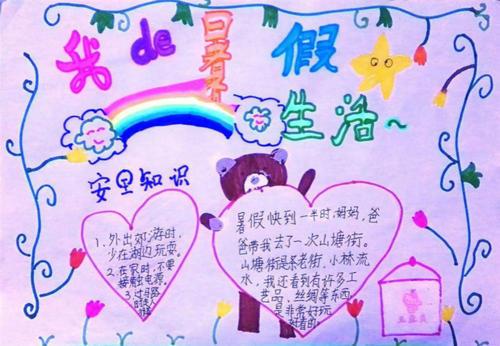 我de暑假
生活~
安里知识
1、外出郊游时,
少在湖边玩耍。
2、在家时,不要
接触电源。
3、过马路
暑假快到一半时,妈妈,爸
爸带我去了一次山塘街。
山塘街是条老街,小桥流
水,我还看到有许多工
艺品,丝绸等东西
是非常好玩